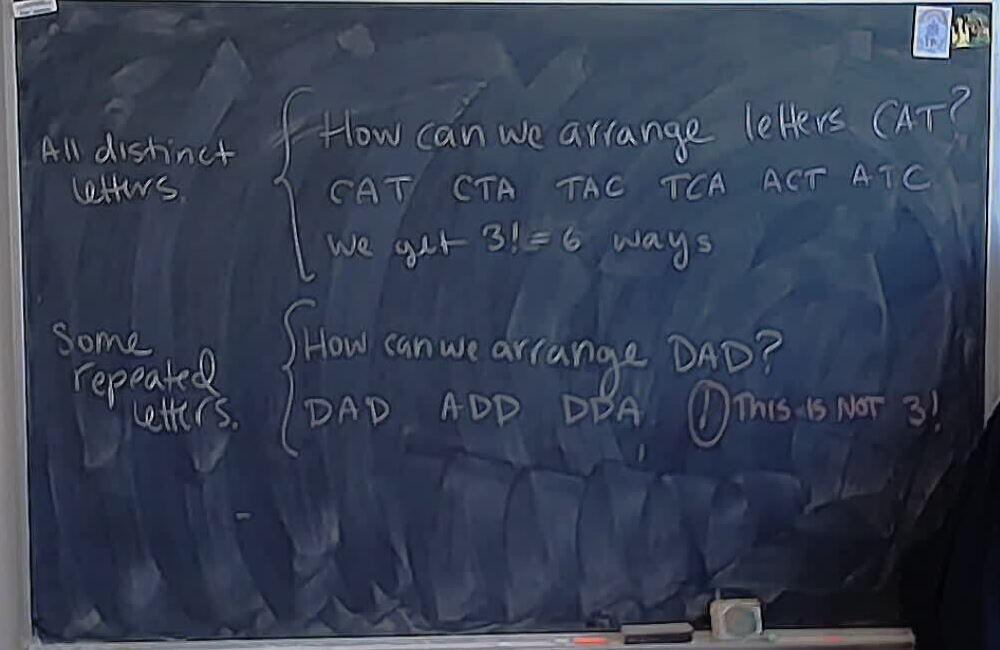 All distinct letters.
How can we arrange letters CAT?
CAT CTA TAC TCA ACT ATC
We get 3! = 6 ways
Some repeated letters.
How can we arrange DAD?
DAD ADD DDA ! THIS IS NOT 3!